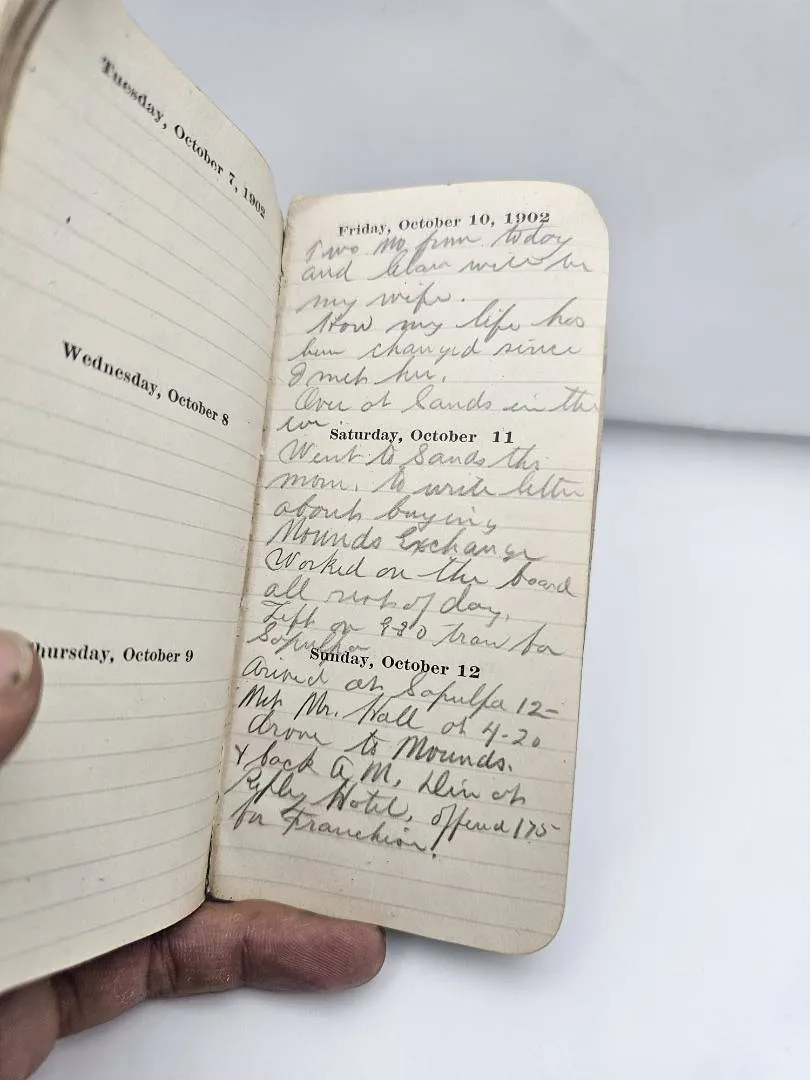 Tuesday, October 7, 1902
Wednesday, October 8
Thursday, October 9
Friday, October 10, 1902
Two mo from today
and Clara will be
my wife.
How my life has
been changed since
I met her.
Over at Sands in the
eve.
Saturday, October 11
Went to Sands this
morn. to write letter
about buying
Mounds Exchange
Worked on the board
all rest of day.
Left on 930 train for
Sapulpa
Sunday, October 12
Arived at Sapulpa 12-
Met Mr. Hall at 4-20
drove to Mounds.
& back A.M. Din at
Hotel, offered 175
for Franchise.